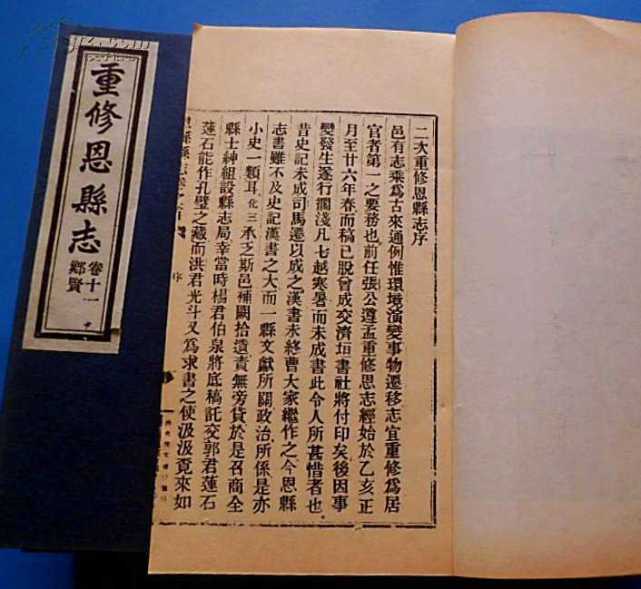 二次重修恩縣志序
邑有志乘為古來通例惟環境演變事物遷移志宜重修為居
官者第一之要務也前任張公遵孟重修恩志經始於乙亥正
月至廿六年春而稿已脫曾成交濟垣書社將付印矣後因事
變發生遂行擱淺凡七越寒暑而未成書此令人所甚惜者也
昔史記未成司馬遷以成之漢書未終曹大家繼作之今恩縣
志書雖不及史記漢書之大而一縣文獻所關政治所係是亦
小史一類耳化三承乏斯邑補闕拾遺責無旁貸於是召商全
縣士紳組設縣志局幸當時楊君伯泉將底稿託交郭君蓮石
蓮石能作孔壁之藏而洪君光斗又為求書之使汲汲竟來如
序
重修恩縣志
卷十一
鄉賢